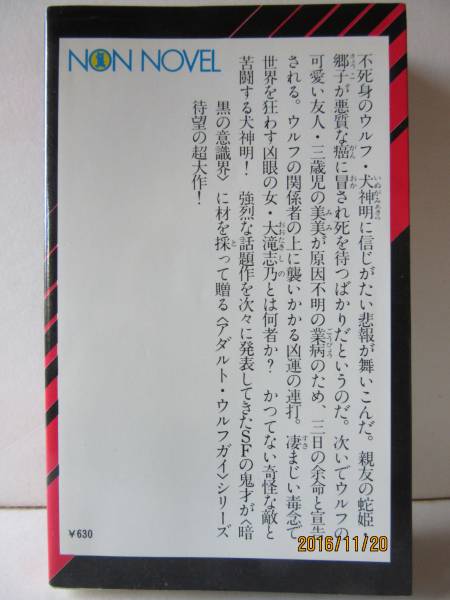 NON NOVEL
不死身のウルフ・犬神明に信じがたい悲報が舞いこんだ。親友の蛇姫
郷子が悪質な癌に冒され死を待つばかりだというのだ。次いでウルフの
可愛い友人・三歳児の美美が原因不明の業病のため、三日の余命と宣告
される。ウルフの関係者の上に襲いかかる凶運の連打。凄まじい毒念で
世界を狂わす凶眼の女・大滝志乃とは何者か? かつてない奇怪な敵と
苦闘する犬神明! 強烈な話題作を次々に発表してきたSFの鬼才が〈暗
黒の意識界〉に材を採って贈る〈アダルト・ウルフガイ〉シリーズ
待望の超大作!
¥630
2016/11/20